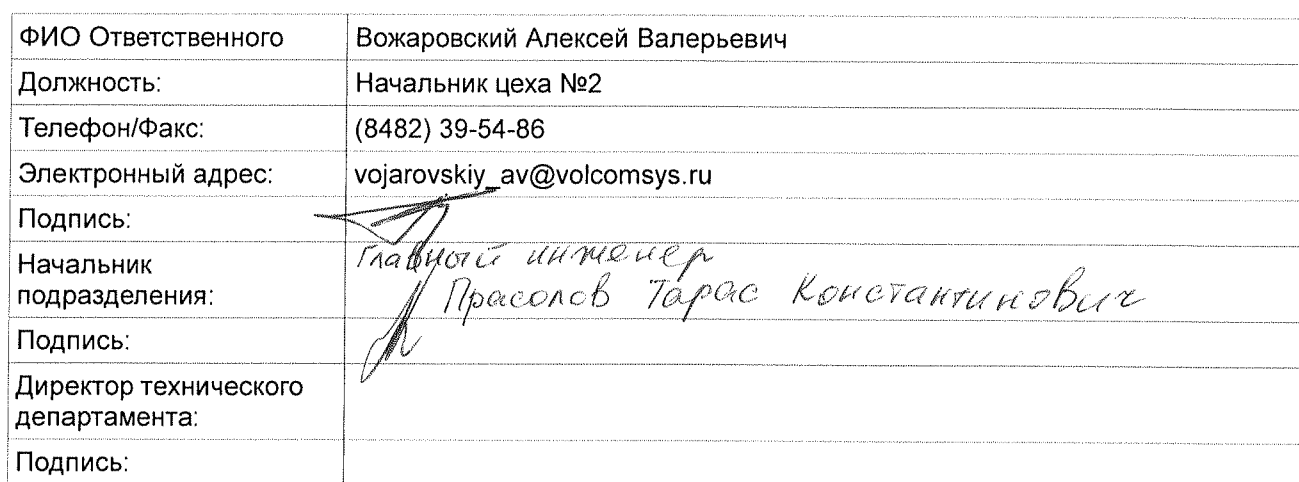 ФИО Ответственного Вожаровский Алексей Валерьевич
Должность: Начальник цеха №2
Телефон/Факс: (8482) 39-54-86
Электронный адрес: vojarovskiy_av@volcomsys.ru
Подпись:
Начальник
подразделения:
Главный инженер
Прасолов Тарас Константинович
Подпись:
Директор технического
департамента:
Подпись: